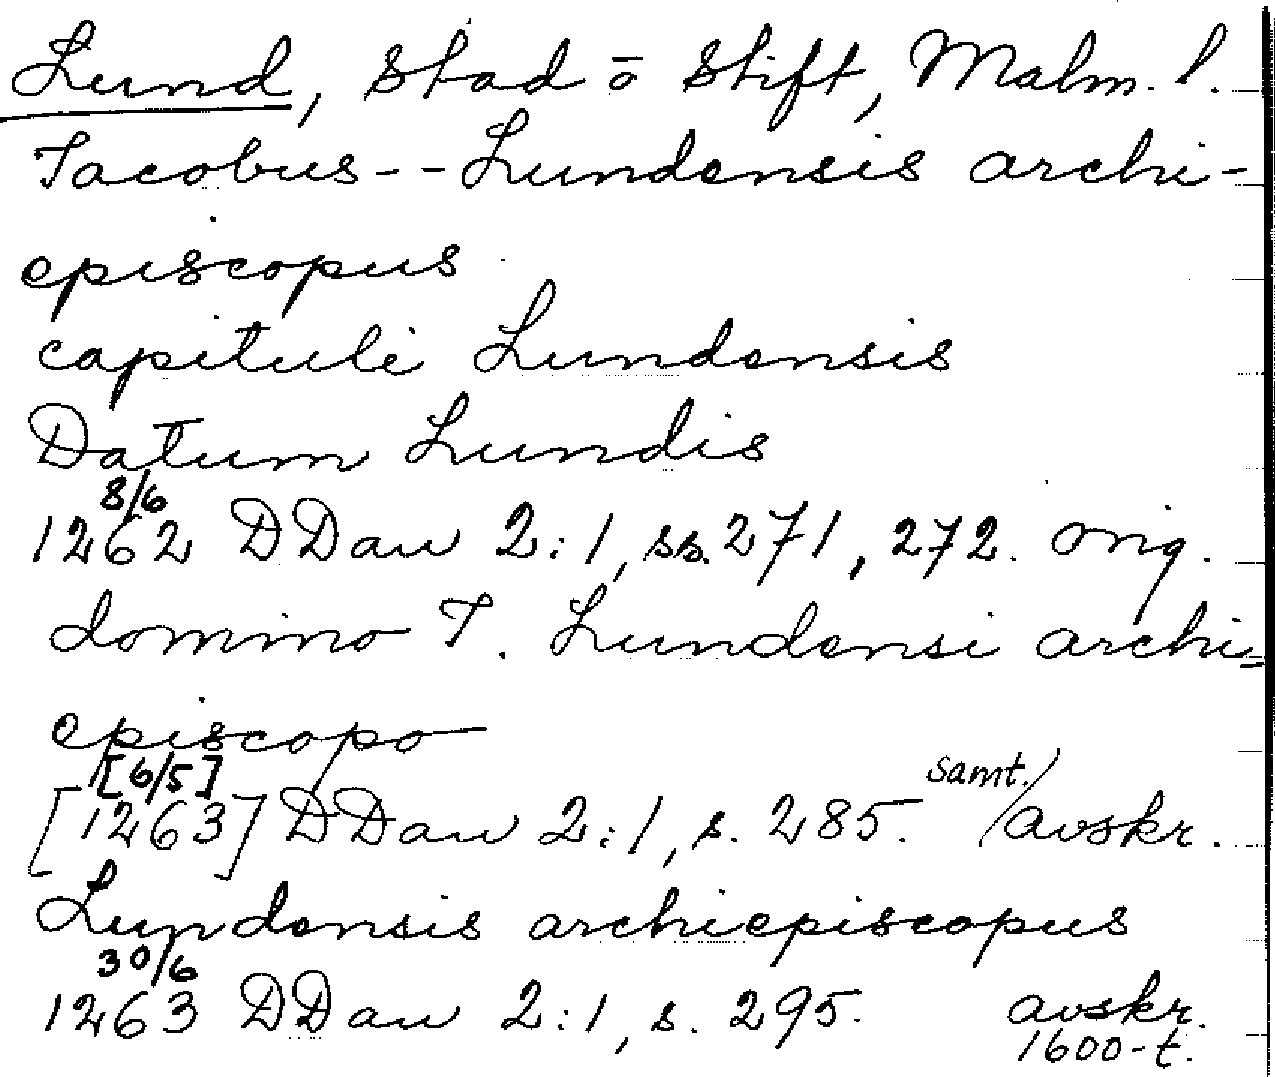 Lund, Stad o Stift, Malm. l.
Jacobus -- Lundensis archi-
episcopus
capituli Lundensis
Datum Lundis
8/6
1262 DDan 2:1, ss. 271, 272. orig.
domino J. Lundensi archi-
episcopo
[6/5] samt./
[1263] DDan 2:1, s. 285. avskr.
Lundensis archiepiscopus
30/6
1263 DDan 2:1, s. 295. avskr.
1600-t.